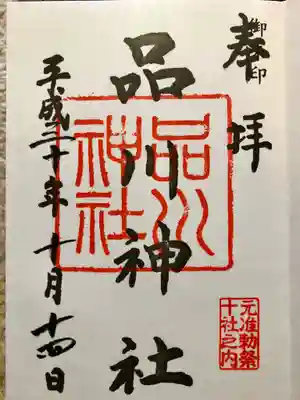 奉拝
御朱印
品川神社
品川神社
平成三十年十月十四日
元准勅祭
十社之内